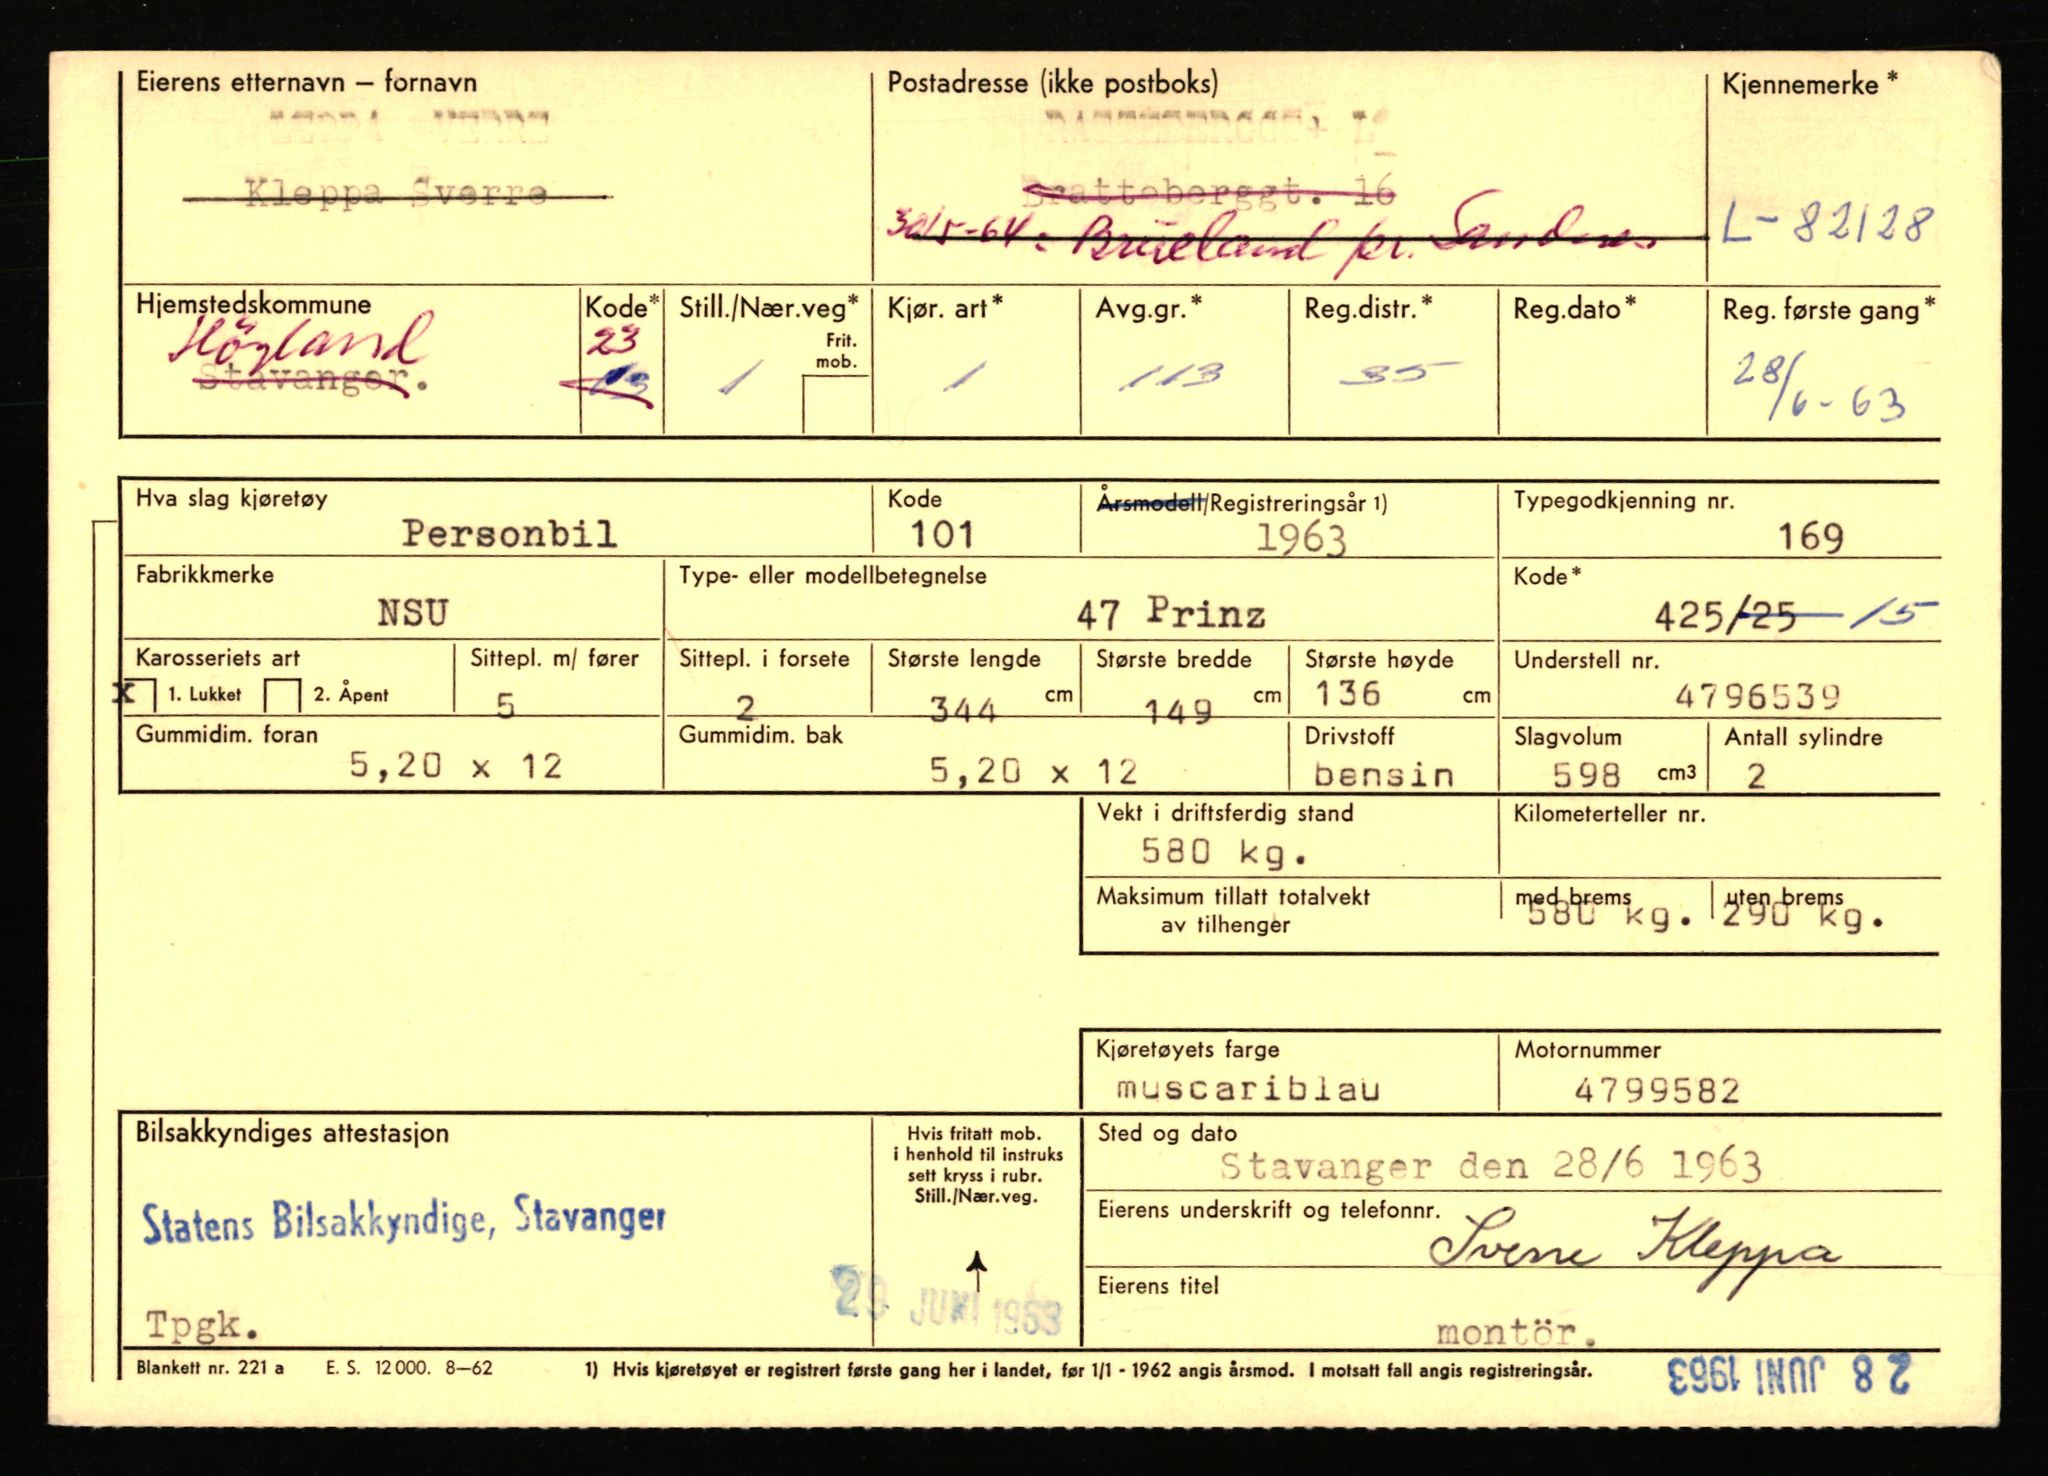 Eierens etternavn – fornavn
Kleppa Sverre
Postadresse (ikke postboks)
Bratteberggt. 16
30/5-64: Brueland pr. Sandnes
Kjennemerke*
L-82128
Hjemstedskommune
Høyland
Stavanger.
Kode*
23
113
Still./Nær.veg*
Frit.
mob.
1
Kjør. art*
1
Avg.gr.*
113
Reg.distr.*
35
Reg.dato*
Reg. første gang*
28/6-63
Hva slag kjøretøy
Personbil
Kode
101
Årsmodell/Registreringsår 1)
1963
Typegodkjenning nr.
169
Fabrikkmerke
NSU
Type- eller modellbetegnelse
47 Prinz
Kode*
425/25 /15
Karosseriets art
x 1. Lukket 2. Åpent
Sittepl. m/ fører
5
Sittepl. i forsete
2
Største lengde
344 cm
Største bredde
149 cm
Største høyde
136 cm
Understell nr.
4796539
Gummidim. foran
5,20 x 12
Gummidim. bak
5,20 x 12
Drivstoff
bensin
Slagvolum
598 cm3
Antall sylindre
2
Vekt i driftsferdig stand
580 kg.
Kilometerteller nr.
Maksimum tillatt totalvekt
av tilhenger
med brems
580 kg.
uten brems
290 kg.
Kjøretøyets farge
muscariblau
Motornummer
4799582
Bilsakkyndiges attestasjon
Statens Bilsakkyndige, Stavanger
Tpgk.
Hvis fritatt mob.
i henhold til instruks
sett kryss i rubr.
Still./Nær.veg.
29 JUNI 1963
Sted og dato
Stavanger den 28/6 1963
Eierens underskrift og telefonnr.
Sverre Kleppa
Eierens titel
montör.
Blankett nr. 221 a E. S. 12000. 8–62
1) Hvis kjøretøyet er registrert første gang her i landet, før 1/1 - 1962 angis årsmod. I motsatt fall angis registreringsår.
28 JUNI 1963